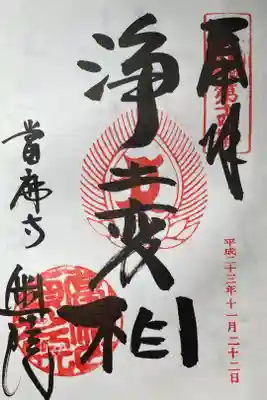 奉拝
平成二十三年十一月二十二日
浄土変相
當麻寺
奥院